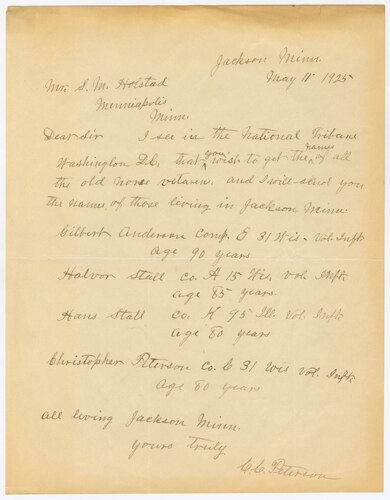 Jackson Minn.
May 11 1925
Mr. S. M. Holstad
Menneapolis
Minn.
Dear Sir I see in the National Tribune
Washington D.C. that you wish to get the names of all
the old norse vitarin. and I will send you
the names of those living in Jackson Minn.
Gilbert Anderson Comp. E 31 Wis - Vol. Inft
age 90 years
Halvor Stall Co. A 15 Wis, Vol. Inft.
age 85 years.
Hans Stall Co. K 95 Ill. Vol. Inft.
age 80 years
Christopher Peterson Co. C 31 Wis Vol. Inft.
age 80 years
all living Jackson Minn.
yours truly
C. C. Peterson